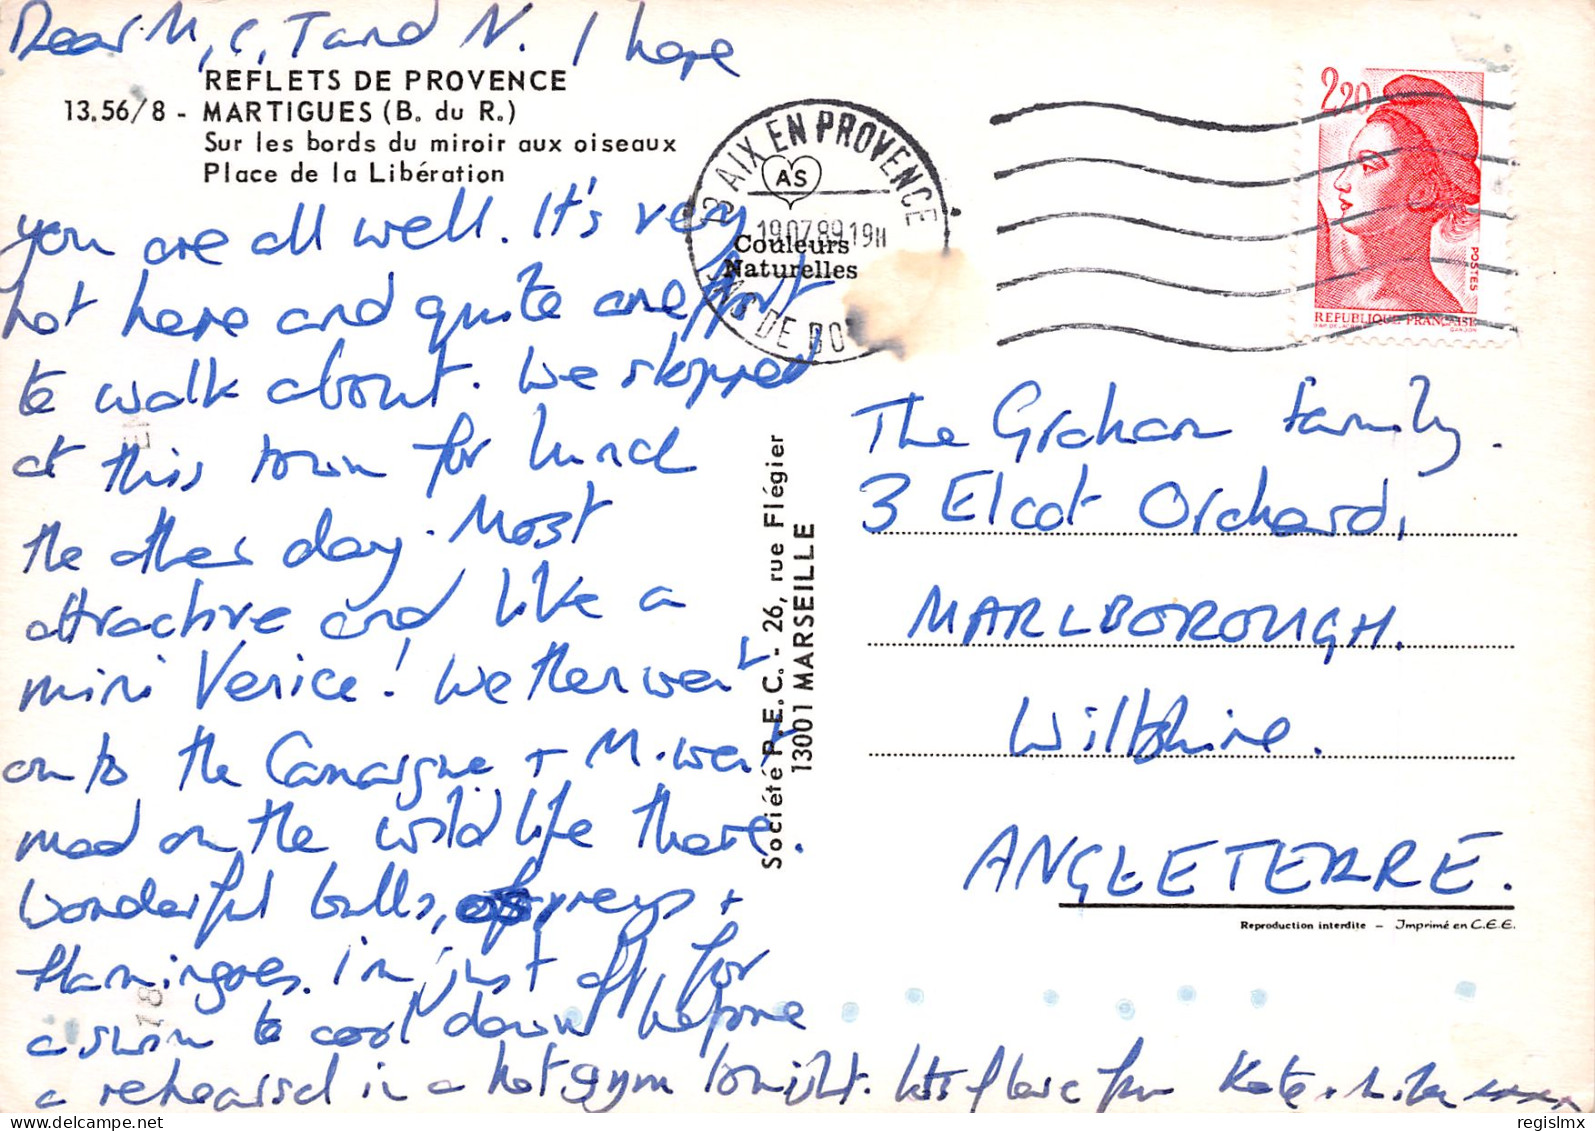 Dear M, C, T and N. I hope
REFLETS DE PROVENCE
13.56/8 - MARTIGUES (B. du R.)
Sur les bords du miroir aux oiseaux
Place de la Libération
you are all well. It's very
hot here and quite an effort
to walk about. We stopped
at this town for lunch
the other day. Most
attractive and like a
mini Venice! We then went
on to the Camargue + M. went
mad on the wild life there.
Wonderful bulls, ospreys +
flamingoes. I'm just off for
a swim to cool down before
a rehearsal in a hot gym tonight. Lots of love from Kate + xxxx
13 AIX EN PROVENCE
AS
19.07.89 19H
Couleurs
Naturelles
BDS DE
2,20
POSTES
REPUBLIQUE FRANÇAISE
Société P.E.C. - 26, rue Flégier
13001 MARSEILLE
The Graham Family.
3 Elcot Orchard,
MARLBOROUGH.
Wiltshire.
ANGLETERRE.
Reproduction interdite - Imprimé en C.E.E.
18
regislmx